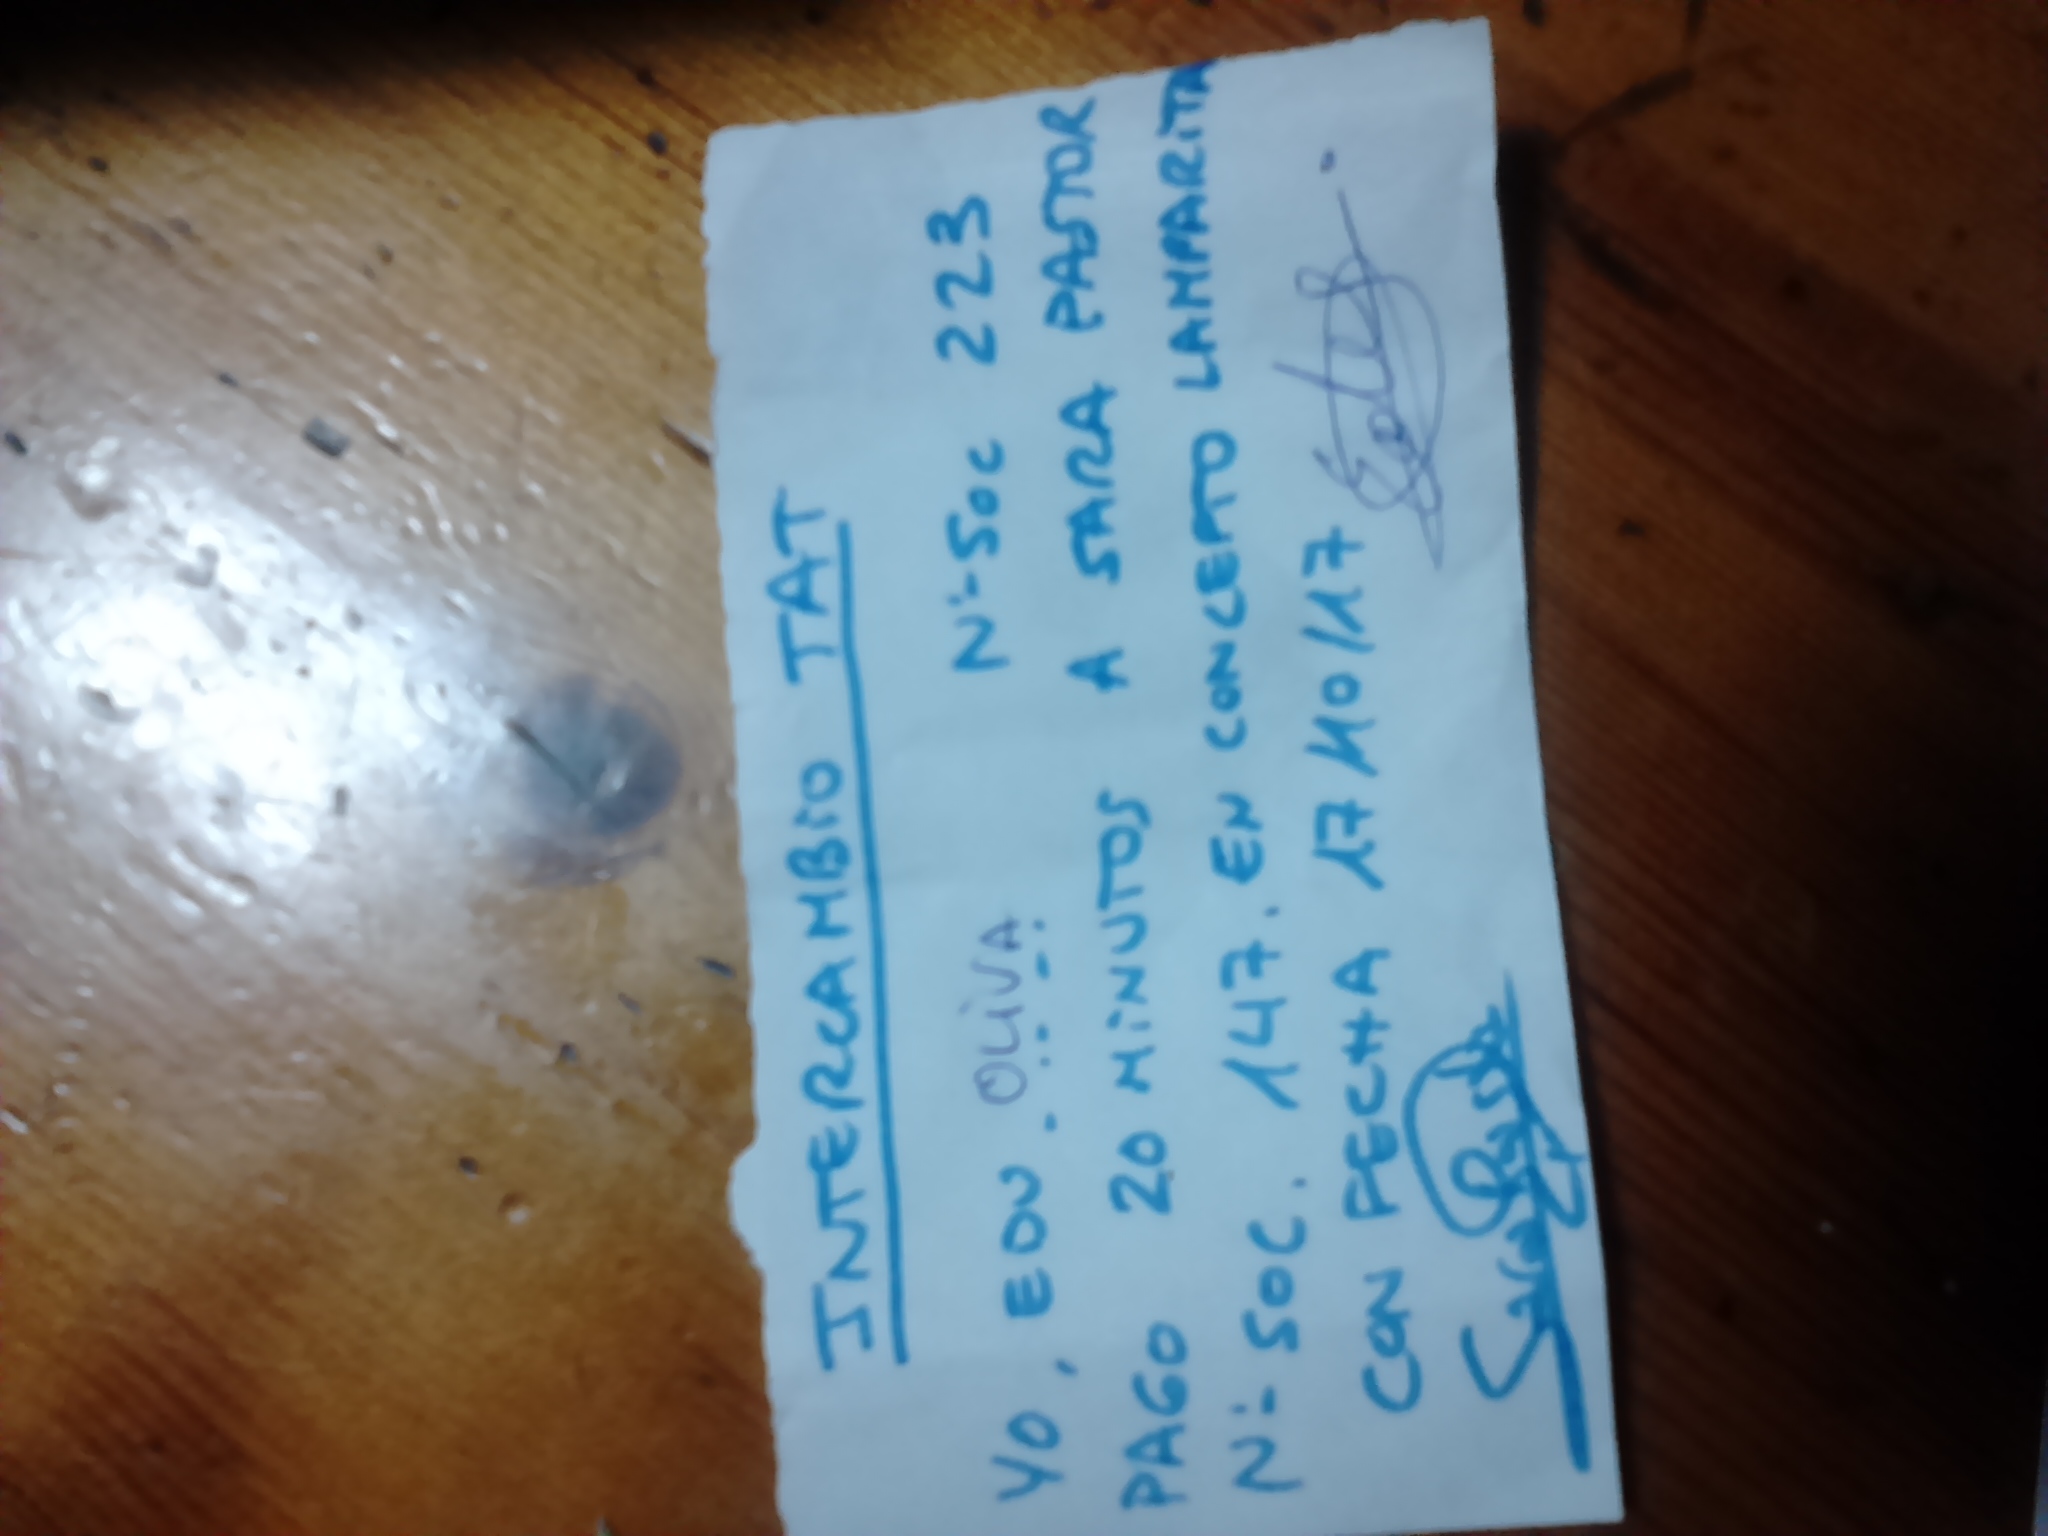 INTERCAMBIO TAT
YO, EDU OLIVA Nº SOC 223
PAGO 20 MINUTOS A SARA PASTOR
Nº SOC. 147. EN CONCEPTO LAMPARITA
CON FECHA 17/10/17
Sara Pastor